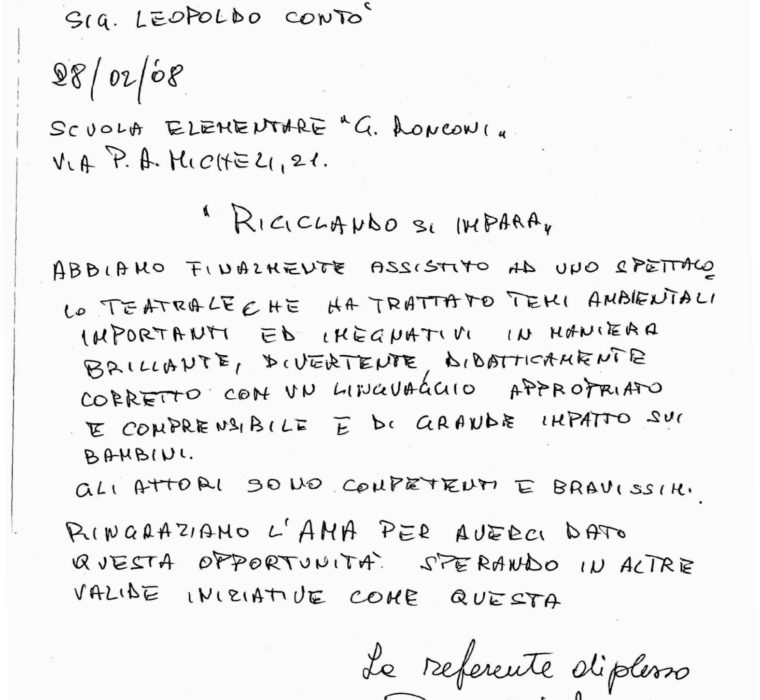 SIG. LEOPOLDO CONTO'
28/02/08
SCUOLA ELEMENTARE "G. RONCONI"
VIA P. A. MICHELI, 21.
"RICICLANDO SI IMPARA"
ABBIAMO FINALMENTE ASSISTITO AD UNO SPETTACO
LO TEATRALE CHE HA TRATTATO TEMI AMBIENTALI
IMPORTANTI ED IMEGNATIVI IN MANIERA
BRILLANTE, DIVERTENTE, DIDATTICAMENTE
CORRETTO CON UN LINGUAGGIO APPROPRIATO
E COMPRENSIBILE E DI GRANDE IMPATTO SUI
BAMBINI.
GLI ATTORI SONO COMPETENTI E BRAVISSIMI.
RINGRAZIAMO L'AMA PER AVERCI DATO
QUESTA OPPORTUNITA' SPERANDO IN ALTRE
VALIDE INIZIATIVE COME QUESTA
La referente di plesso